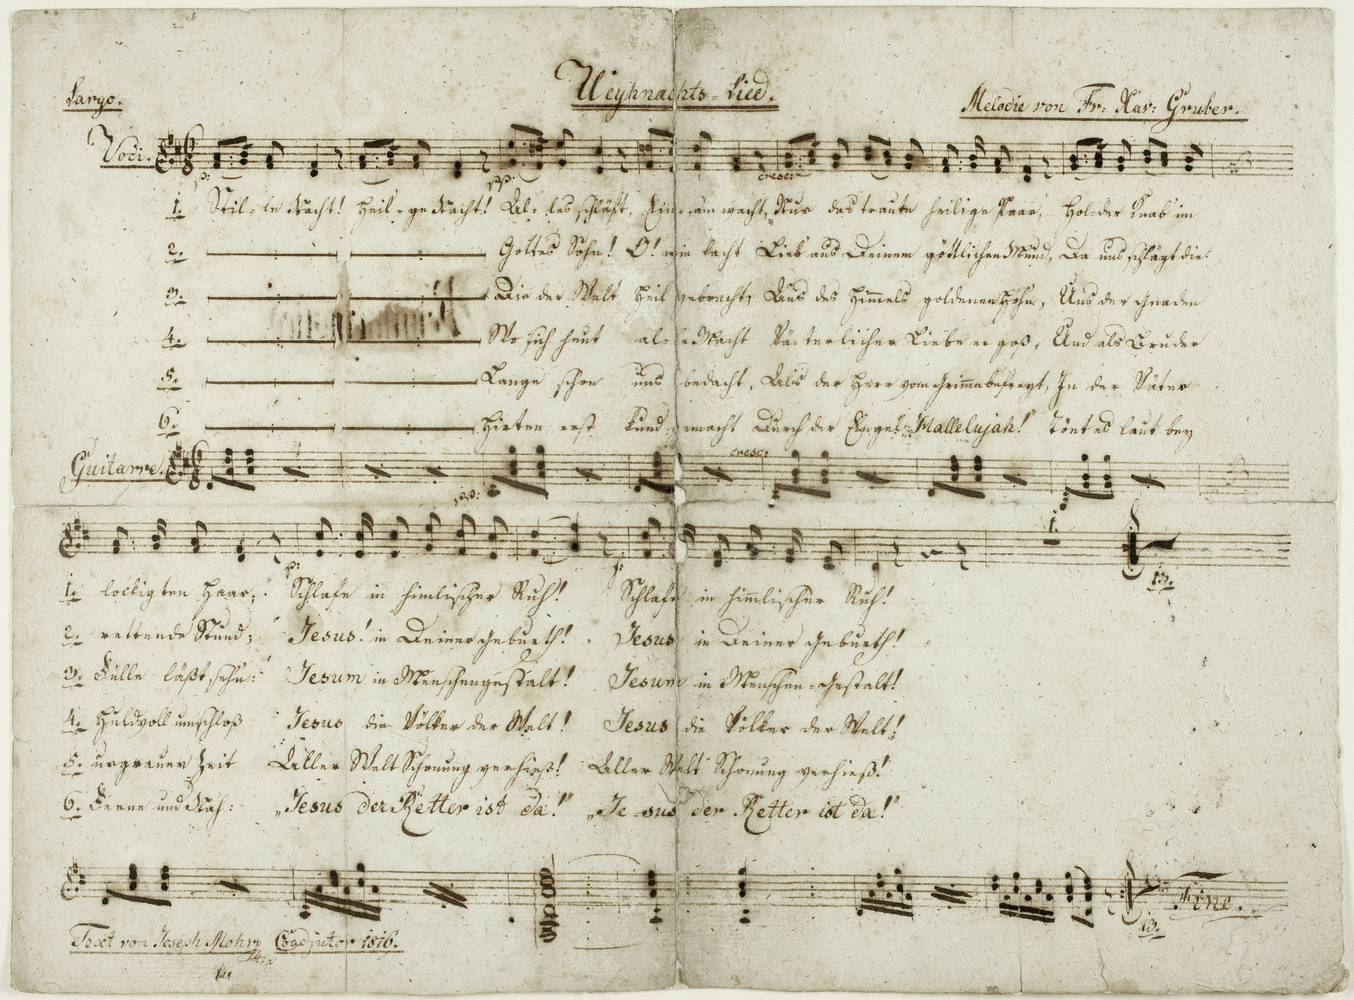 Weyhnachts-Lied.
Largo.
Melodie von Fr: Xav: Gruber.
Voci.
p: pp: cresc:
1. Stil-le Nacht! Heil-ge Nacht! Al-les schläft, Ein-sam wacht, Nur das traute heilige Paar, Hol-der Knab im
2. Gottes Sohn! O! wie lacht Lieb' aus Deinem göttlichen Mund, Da uns schlägt die
3. Die der Welt Heil gebracht, Aus des Himmels goldenen Höhn, Uns der Gnaden
4. Wo sich heut al-le Macht Vä-terlicher Liebe ergoß, Und als Bruder
5. Lange schon uns bedacht, Als der Herr vom Grimme befreyt, In der Väter
6. Hirten erst kund gemacht Durch der Engel „Hallelujah!" Tönt es laut bey
Guitarre.
pp: cresc:
p: p:
1.
13.
1. lockigten Haar; Schlafe in himlischer Ruh! Schlafe in himlischer Ruh!
2. rettende Stund; Jesus! in Deiner Geburth! Jesus in Deiner Geburth!
3. Fülle läßt sehn: Jesum in Menschengestalt! Jesum in Menschen-Gestalt!
4. Huldvoll umschloß Jesus die Völker der Welt! Jesus die Völker der Welt!
5. urgrauer Zeit Aller Welt Schonung verhieß! Aller Welt Schonung verhieß!
6. Ferne und Nah: „Jesus der Retter ist da!" „Je-sus der Retter ist da!"
Fine.
13.
Text von Joseph Mohr Coadjutor 1816.